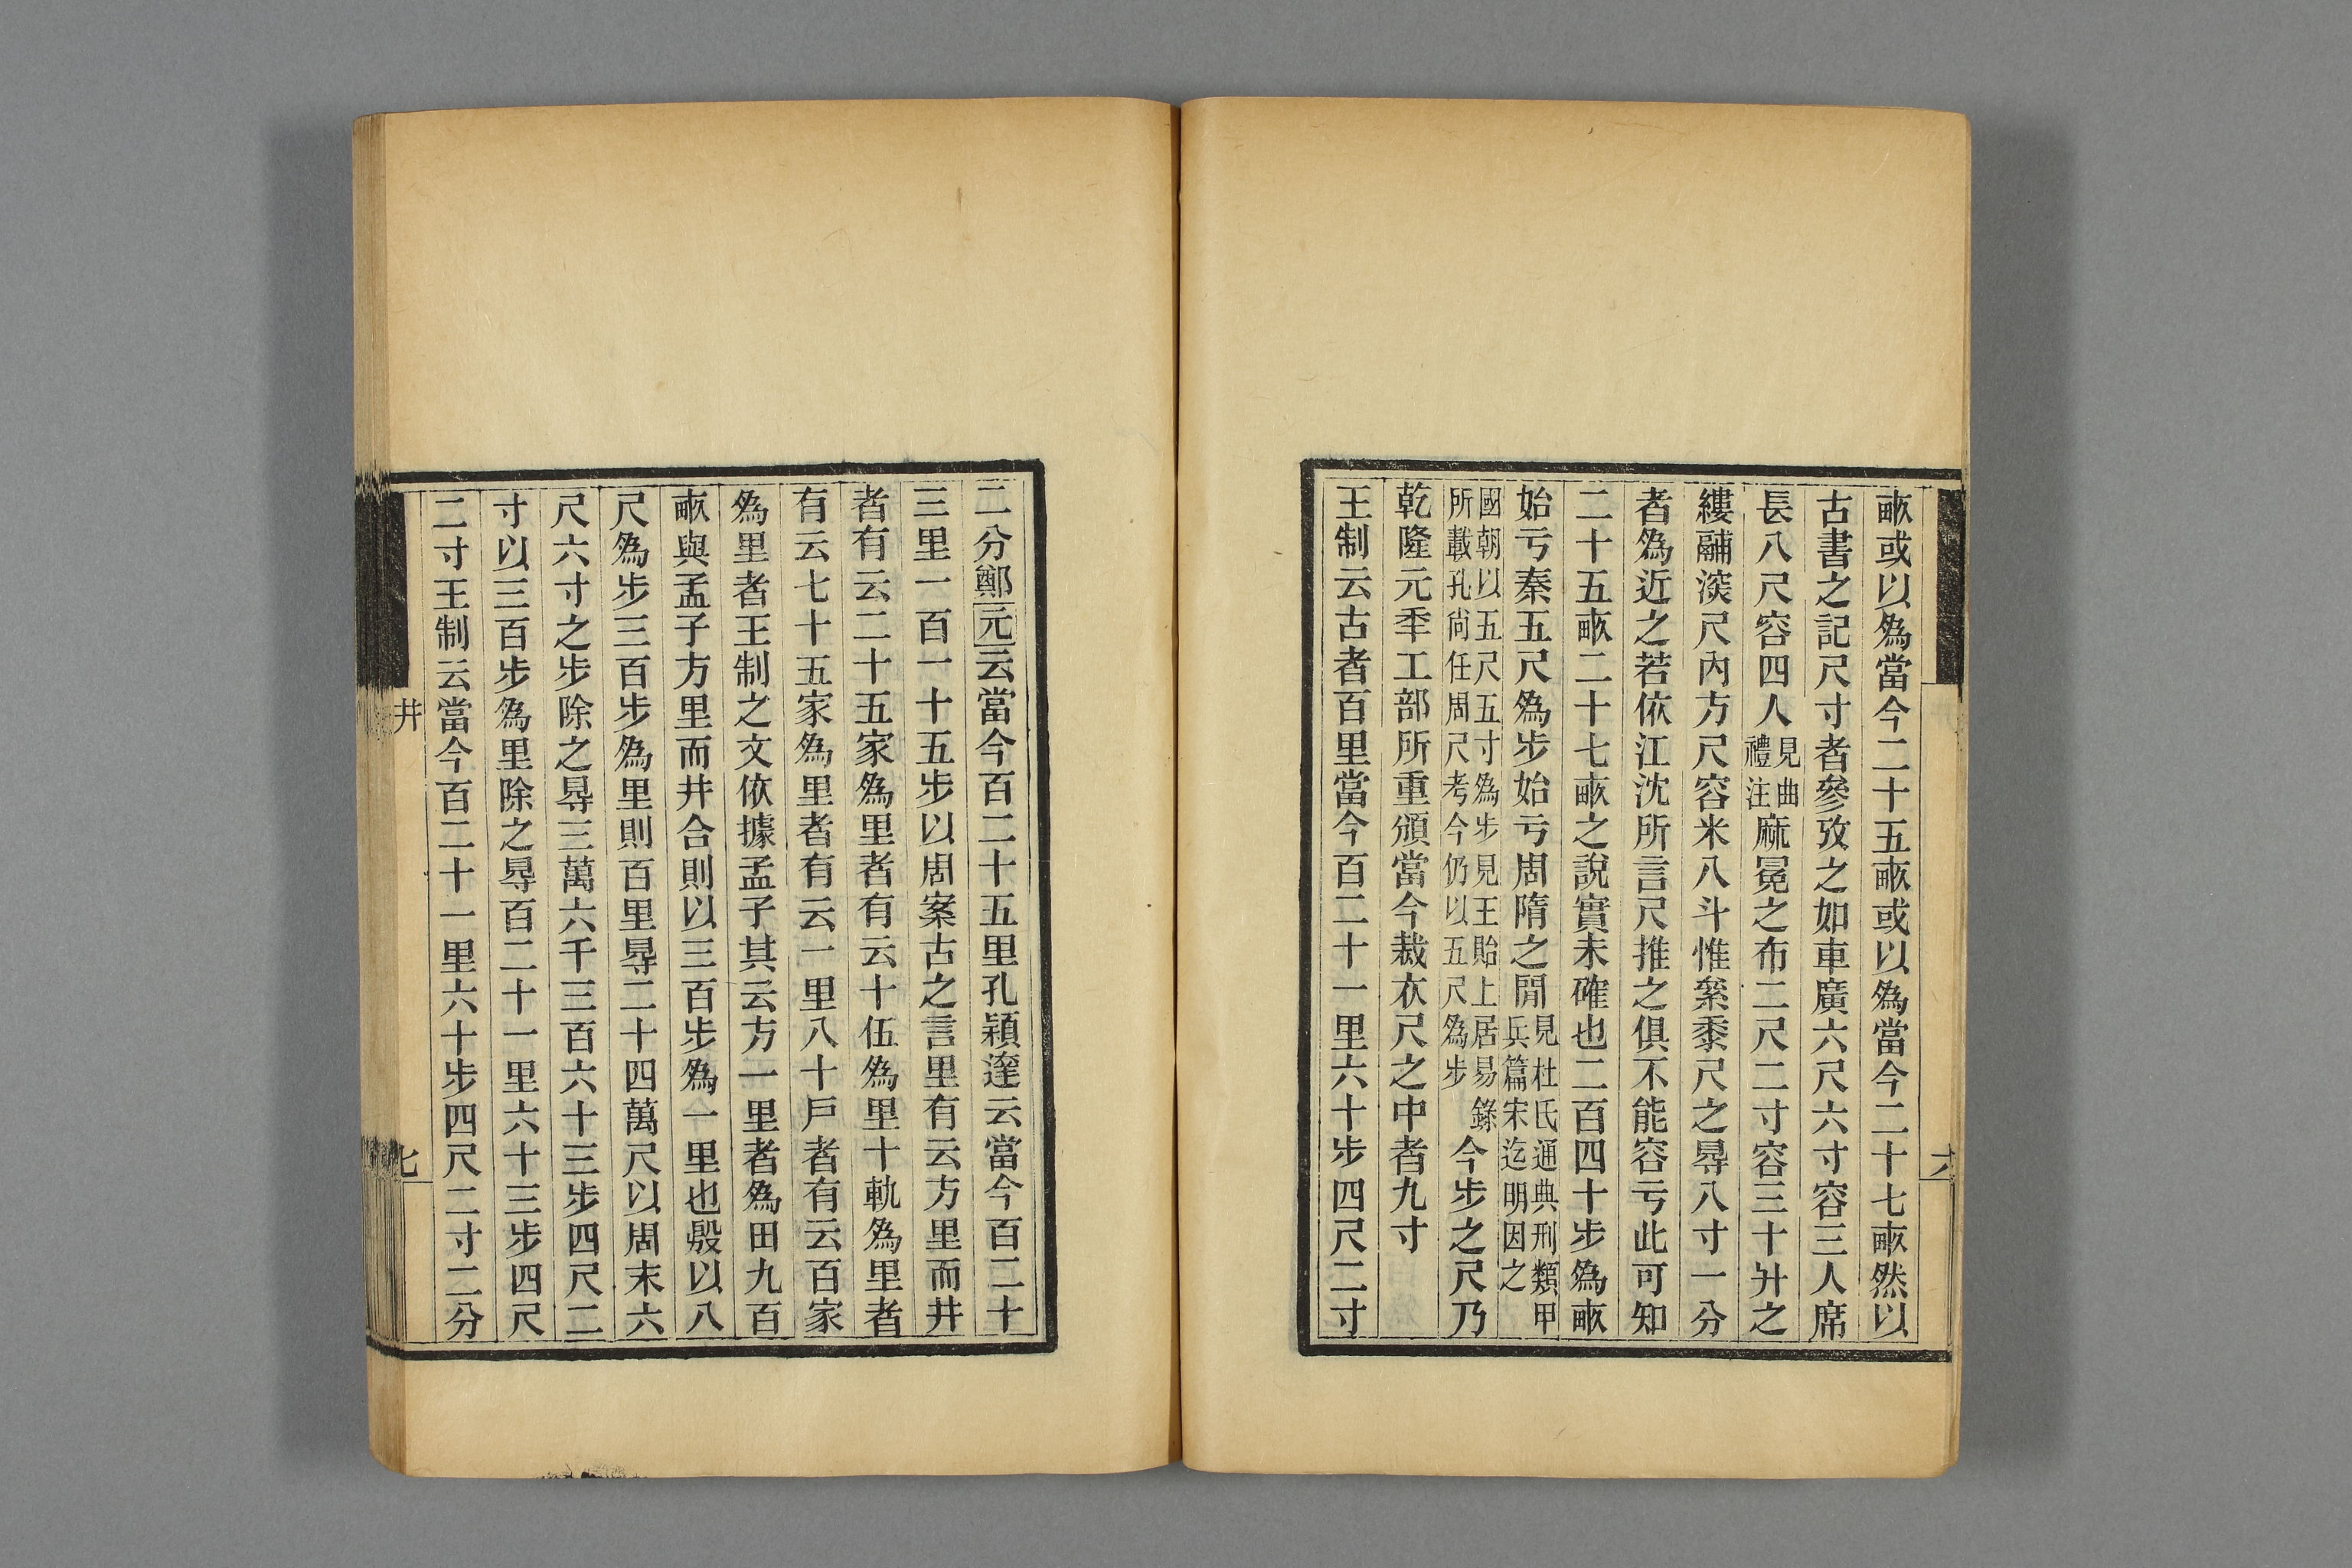 畞或以爲當今二十五畞或以爲當今二十七畞然以
古書之記尺寸者參攷之如車廣六尺六寸容三人席
長八尺容四人見曲禮注麻冕之布二尺二寸容三十升之
縷鬴深尺內方尺容米八斗惟絫黍尺之㝵八寸一分
者爲近之若依江沈所言尺推之俱不能容亏此可知
二十五畞二十七畞之說實未確也二百四十步爲畞
始亏秦五尺爲步始亏周隋之閒見杜氏通典刑類甲兵篇宋迄明因之
國朝以五尺五寸爲步見王貽上居易錄所載孔尙任周尺考今仍以五尺爲步今步之尺乃
乾隆元秊工部所重頒當今裁衣尺之中者九寸
王制云古者百里當今百二十一里六十步四尺二寸
六
二分鄭元云當今百二十五里孔穎達云當今百二十
三里一百一十五步以周案古之言里有云方里而井
者有云二十五家爲里者有云十伍爲里十軌爲里者
有云七十五家爲里者有云一里八十戶者有云百家
爲里者王制之文依據孟子其云方一里者爲田九百
畞與孟子方里而井合則以三百步爲一里也殷以八
尺爲步三百步爲里則百里㝵二十四萬尺以周末六
尺六寸之步除之㝵三萬六千三百六十三步四尺二
寸以三百步爲里除之㝵百二十一里六十三步四尺
二寸王制云當今百二十一里六十步四尺二寸二分
井
七